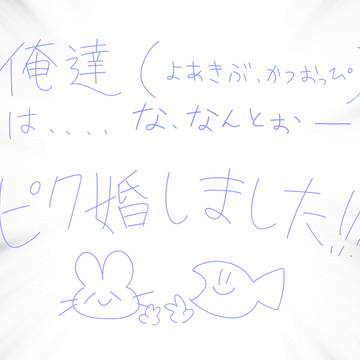 俺達(よあきぶ、かつおっぴ)
は、、、、な、なんとぉー
ピク婚しました!!